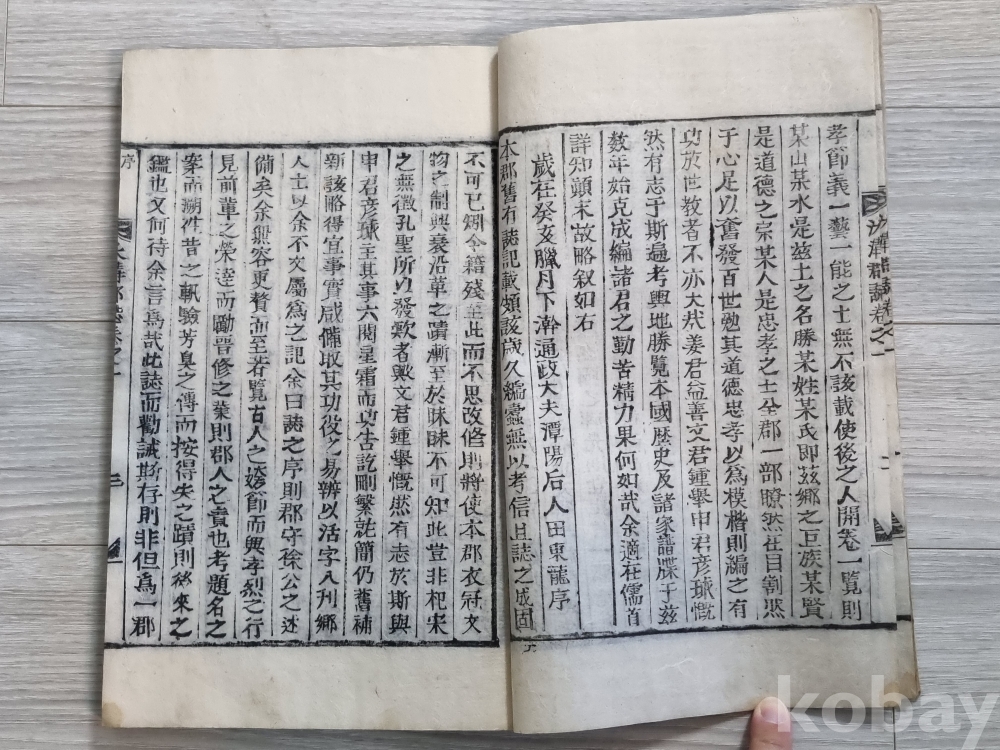 孝節義一藝一能之士無不該載使後之人開卷一覧則
某山某水是玆土之名勝某姓某氏即玆鄉之巨族某賢
是道德之宗某人是忠孝之士全郡一部瞭然在目割然
于心足以奮發百世勉其道德忠孝以爲模楷則編之有
功於世教者不亦大哉姜君益善文君鍾擧申君彦球慨
然有志于斯遍考輿地勝覧本國歷史及諸家譜牒于玆
数年始克成編諸君之勤苦精力果何如哉余適在儒首
詳知顛末故略叙如右
歲在癸亥臘月下澣通政大夫潭陽后人田東龍序
本郡舊有誌記載頗該歲久編蠹無以考信且誌之成固
不可已矧今籍殘至此而不思改修則將使本郡衣冠文
物之制興衰沿革之蹟漸至於昧昧不可知此豈非杞宋
之無徵孔聖所以發歎者興文君鍾擧慨然有志於斯與
申君彦球主其事六閱星霜而功告訖刪繁就簡仍舊補
新該略得宜事實咸備取其功役之易辨以活字入刊鄉
人士以余不文屬爲之記余曰誌之序則郡守徐公之述
備矣余無容更贅而至若覧古人之姱節而興孝烈之行
見前軰之榮達而勵晋修之業則郡人之責也考題名之
案而溯徃昔之軌驗芳臭之傳而按得失之蹟則後來之
鑑也又何待余言爲哉此誌而勸誡斯存則非但爲一郡
序
kobay